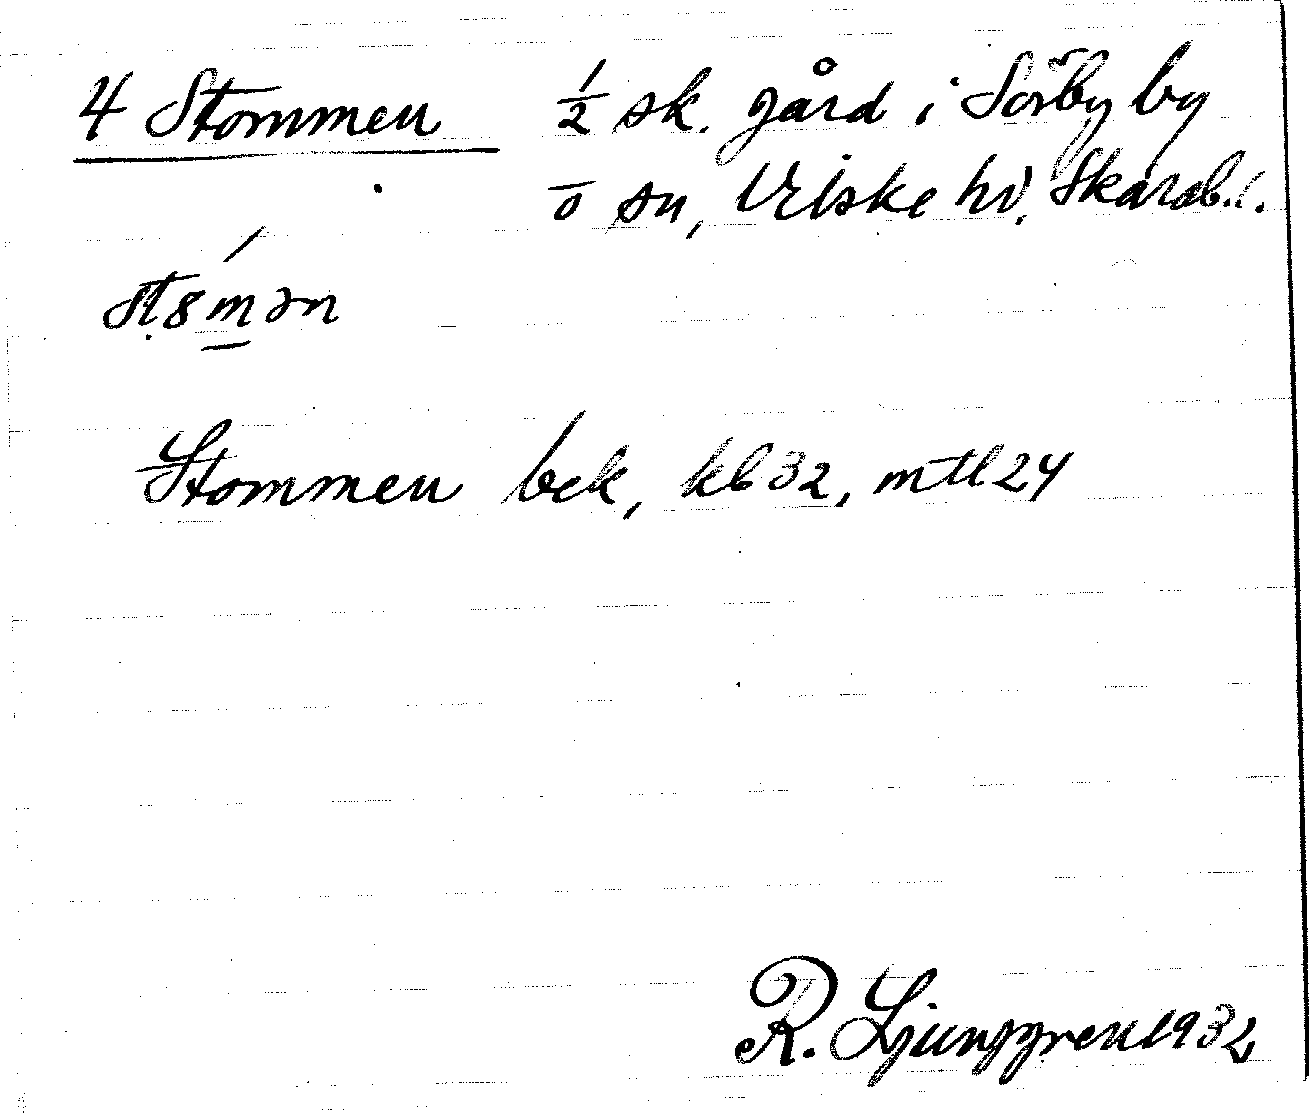 4 Stommen ½ sk. gård i Sörby by
o sn, Vilske hd. Skarab. l.
st8mən
Stommen bek, kb 32, mtl 24
R. Ljunggren 1932